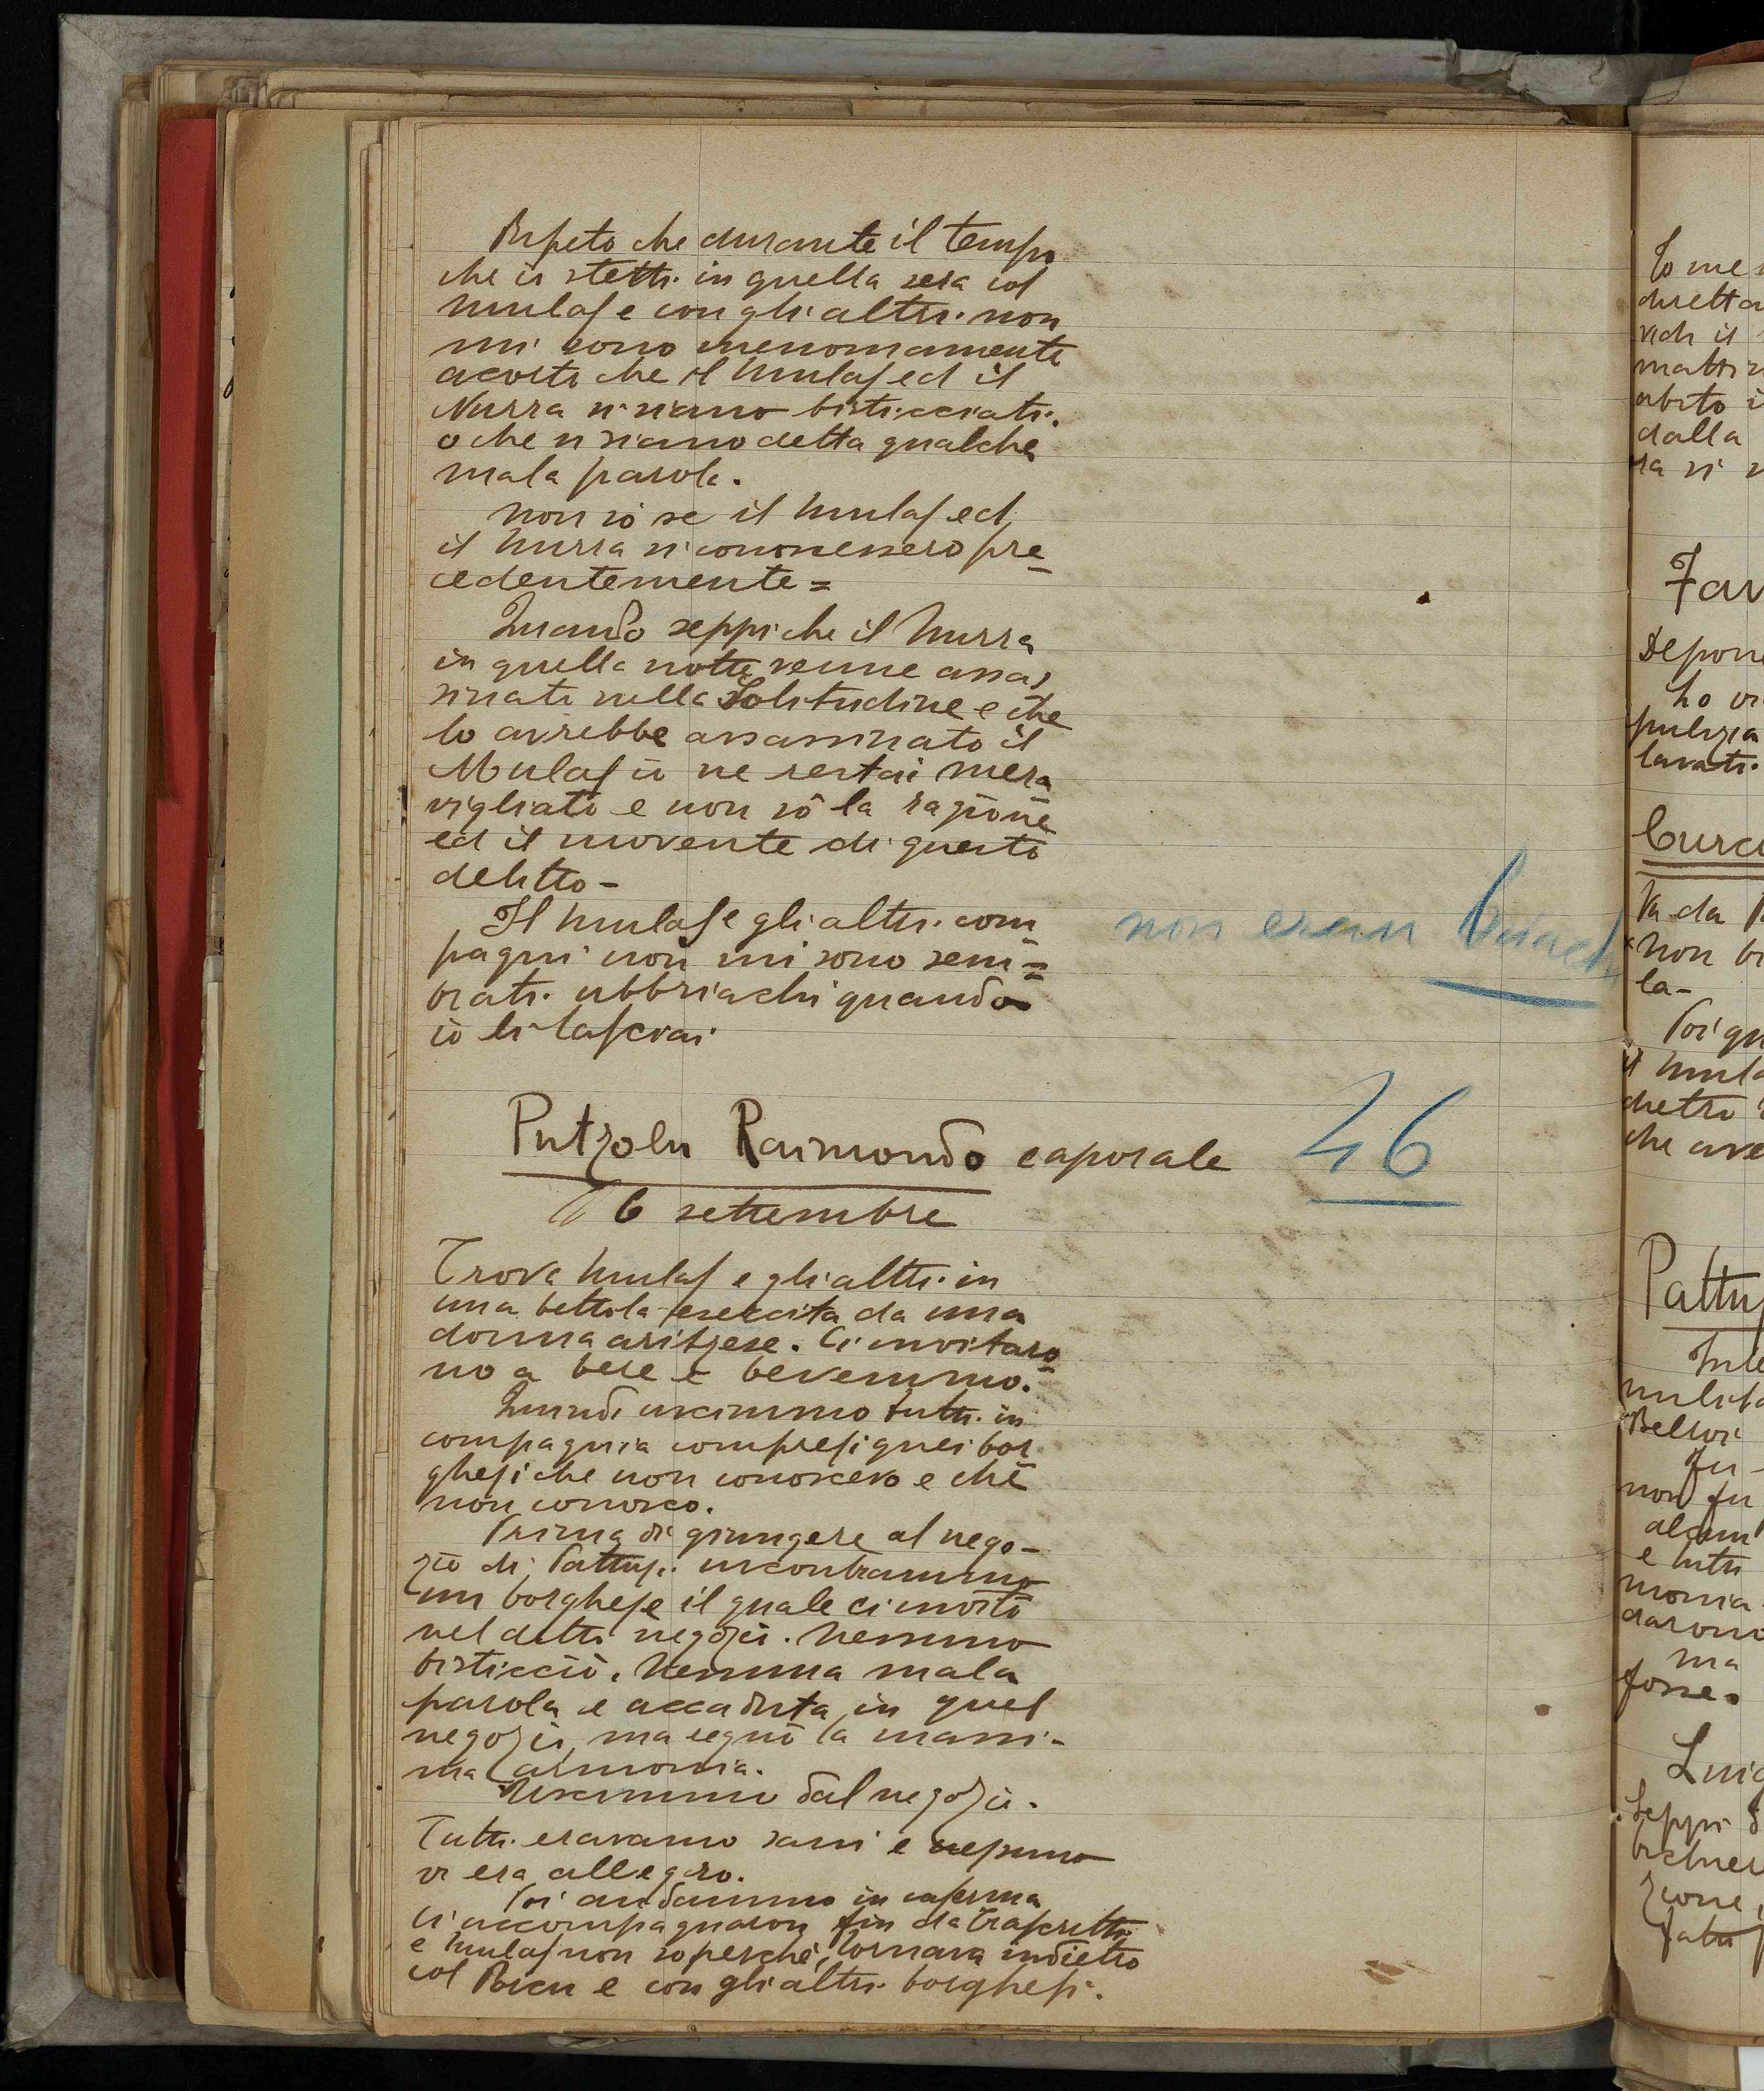 Ripeto che durante il tempo
che io stetti in quella sera col
Mulas e con gli altri non
mi sono menomamente
acorto che il Mulas ed il
Nurra si siano bisticciati
o che si siano detta qualche
mala parola.
Non sò se il Mulas ed
il Nurra si conoscessero pre-
cedentemente=
Quando seppi che il Nurra
in quella notte venne assas
sinato nella Solitudine e che
lo avrebbe assassinato il
Mulas io ne restai mera
vigliato e non sò la ragione
ed il movente di questo
delitto-
Il Mulas e gli altri com
pagni non mi sono sem=
brati ubbriachi quando
io li lasciai
non eran
Putzolu Raimondo caporale 26
6 settembre
Trova Mulas e gli altri in
una bettola esercita da una
donna aritzese. Ci invitaro-
no a bere e bevemmo.
Quindi uscimmo tutti in
compagnia compresi quei bor
ghesi che non conoscevo e che
non conosco.
Prima di giungere al nego-
zio di Pattusi incontrammo
un borghese il quale ci invitò
nel detto negozio. Nessuno
bisticciò. Nessuna mala
parola è accaduta in quel
negozio, ma seguì la massi-
ma armonia.
Uscimmo dal negozio.
Tutti eravamo sani e nessuno
vi era allegro.
Poi andammo in caserma
Ci accompagnaron fin da
e Mulas non so perchè, tornava indietro
col Porcu e con gli altri borghesi.
Io me
diretta
vidi il
abito i
dalla
ra si
Depone
ho
pulizia
lavati.
Va da
non
la-
Poi
il
dietro
che
Bellvi
Fu
non fu
alcun
e
ma
fosse.
Seppi
zione,